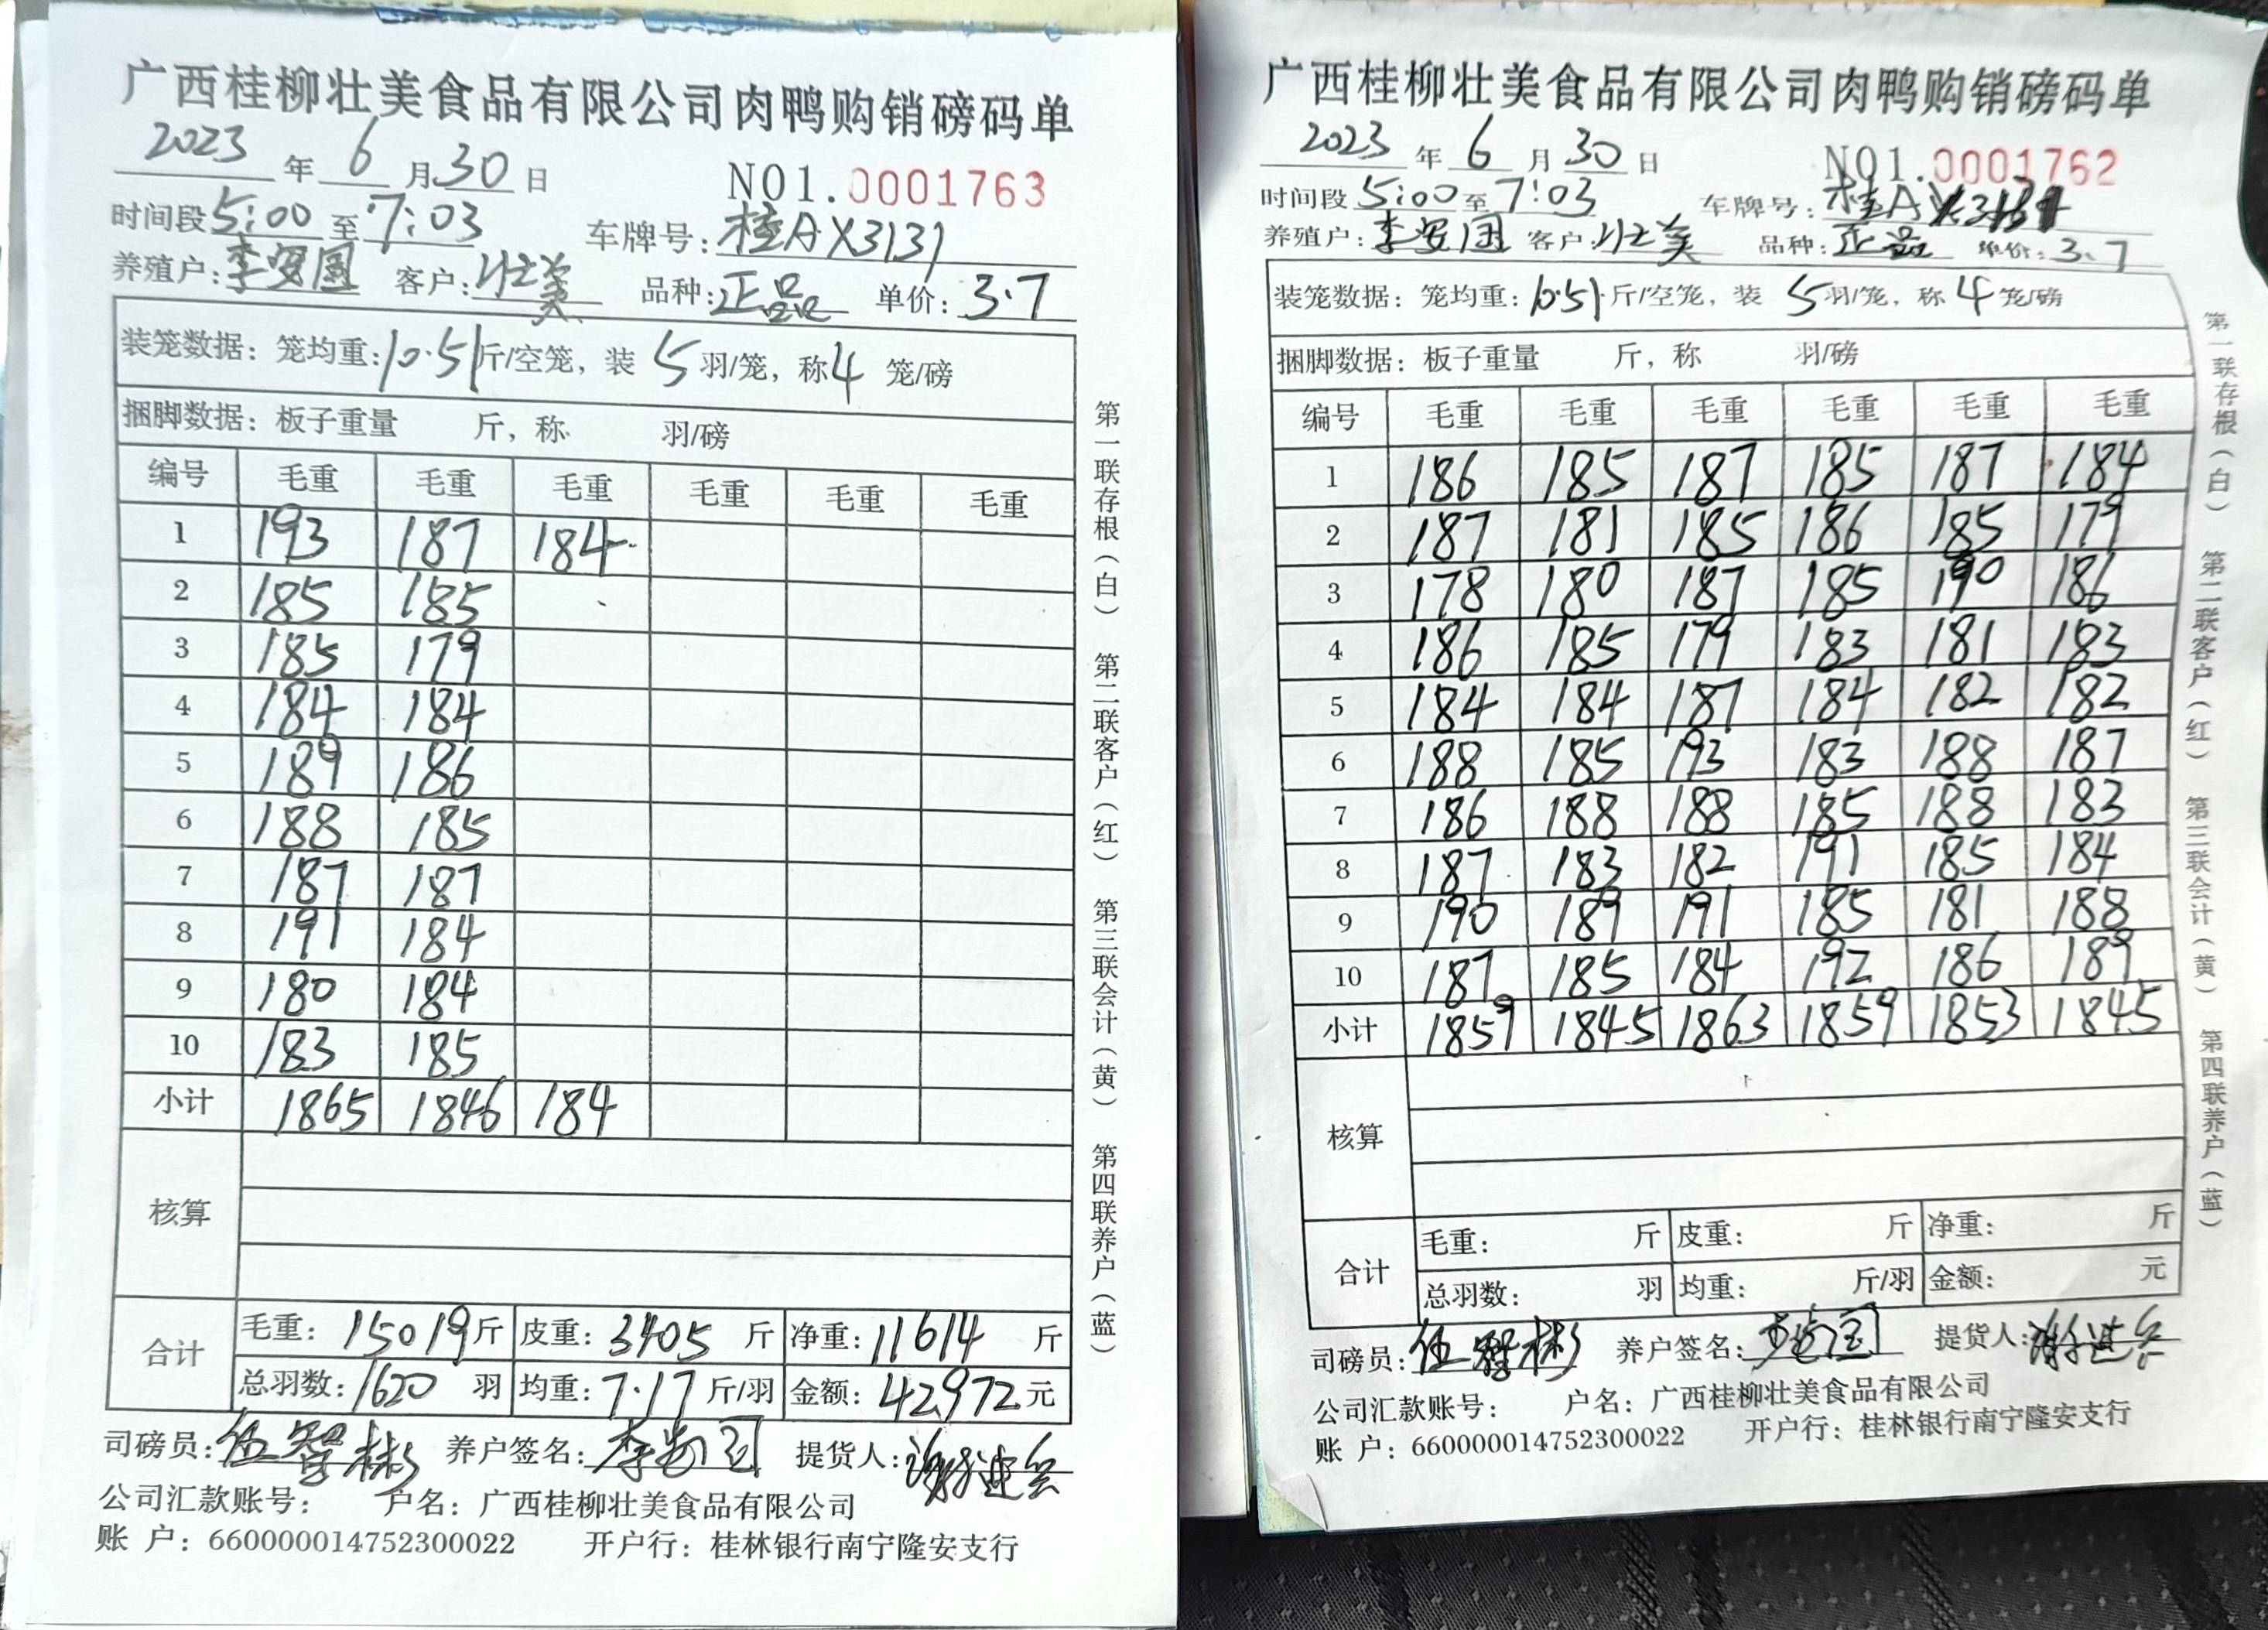 广西桂柳壮美食品有限公司肉鸭购销磅码单
2023 年 6 月 30 日 NO1.0001763
时间段 5:00 至 7:03 车牌号: 桂A X3131
养殖户: 李安国 客户: 壮美 品种: 正品 单价: 3.7
装笼数据: 笼均重: 10.51 斤/空笼, 装 5 羽/笼, 称 4 笼/磅
捆脚数据: 板子重量 斤, 称 羽/磅
编号 毛重 毛重 毛重 毛重 毛重 毛重
1 193 187 184
2 185 185
3 185 179
4 184 184
5 189 186
6 188 185
7 187 187
8 191 184
9 180 184
10 183 185
小计 1865 1846 184
核算
合计 毛重: 15019 斤 皮重: 3405 斤 净重: 11614 斤
总羽数: 1620 羽 均重: 7.17 斤/羽 金额: 42972 元
司磅员: 伍智彬 养户签名: 李安国 提货人:
公司汇款账号: 户名: 广西桂柳壮美食品有限公司
账 户: 660000014752300022 开户行: 桂林银行南宁隆安支行
第一联存根(白) 第二联客户(红) 第三联会计(黄) 第四联养户(蓝)
广西桂柳壮美食品有限公司肉鸭购销磅码单
2023 年 6 月 30 日 NO1.0001762
时间段 5:00 至 7:03 车牌号: 桂A X3131
养殖户: 李安国 客户: 壮美 品种: 正品 单价: 3.7
装笼数据: 笼均重: 10.51 斤/空笼, 装 5 羽/笼, 称 4 笼/磅
捆脚数据: 板子重量 斤, 称 羽/磅
编号 毛重 毛重 毛重 毛重 毛重 毛重
1 186 185 187 185 187 184
2 187 181 185 186 185 179
3 178 180 187 185 190 186
4 186 185 179 183 181 183
5 184 184 187 184 182 182
6 188 185 193 183 188 187
7 186 188 188 185 188 183
8 187 183 182 191 185 184
9 190 189 191 185 181 188
10 187 185 184 192 186 189
小计 1859 1845 1863 1859 1853 1845
核算
合计 毛重: 斤 皮重: 斤 净重: 斤
总羽数: 羽 均重: 斤/羽 金额: 元
司磅员: 伍智彬 养户签名: 李安国 提货人:
公司汇款账号: 户名: 广西桂柳壮美食品有限公司
账 户: 660000014752300022 开户行: 桂林银行南宁隆安支行
第一联存根(白) 第二联客户(红) 第三联会计(黄) 第四联养户(蓝)